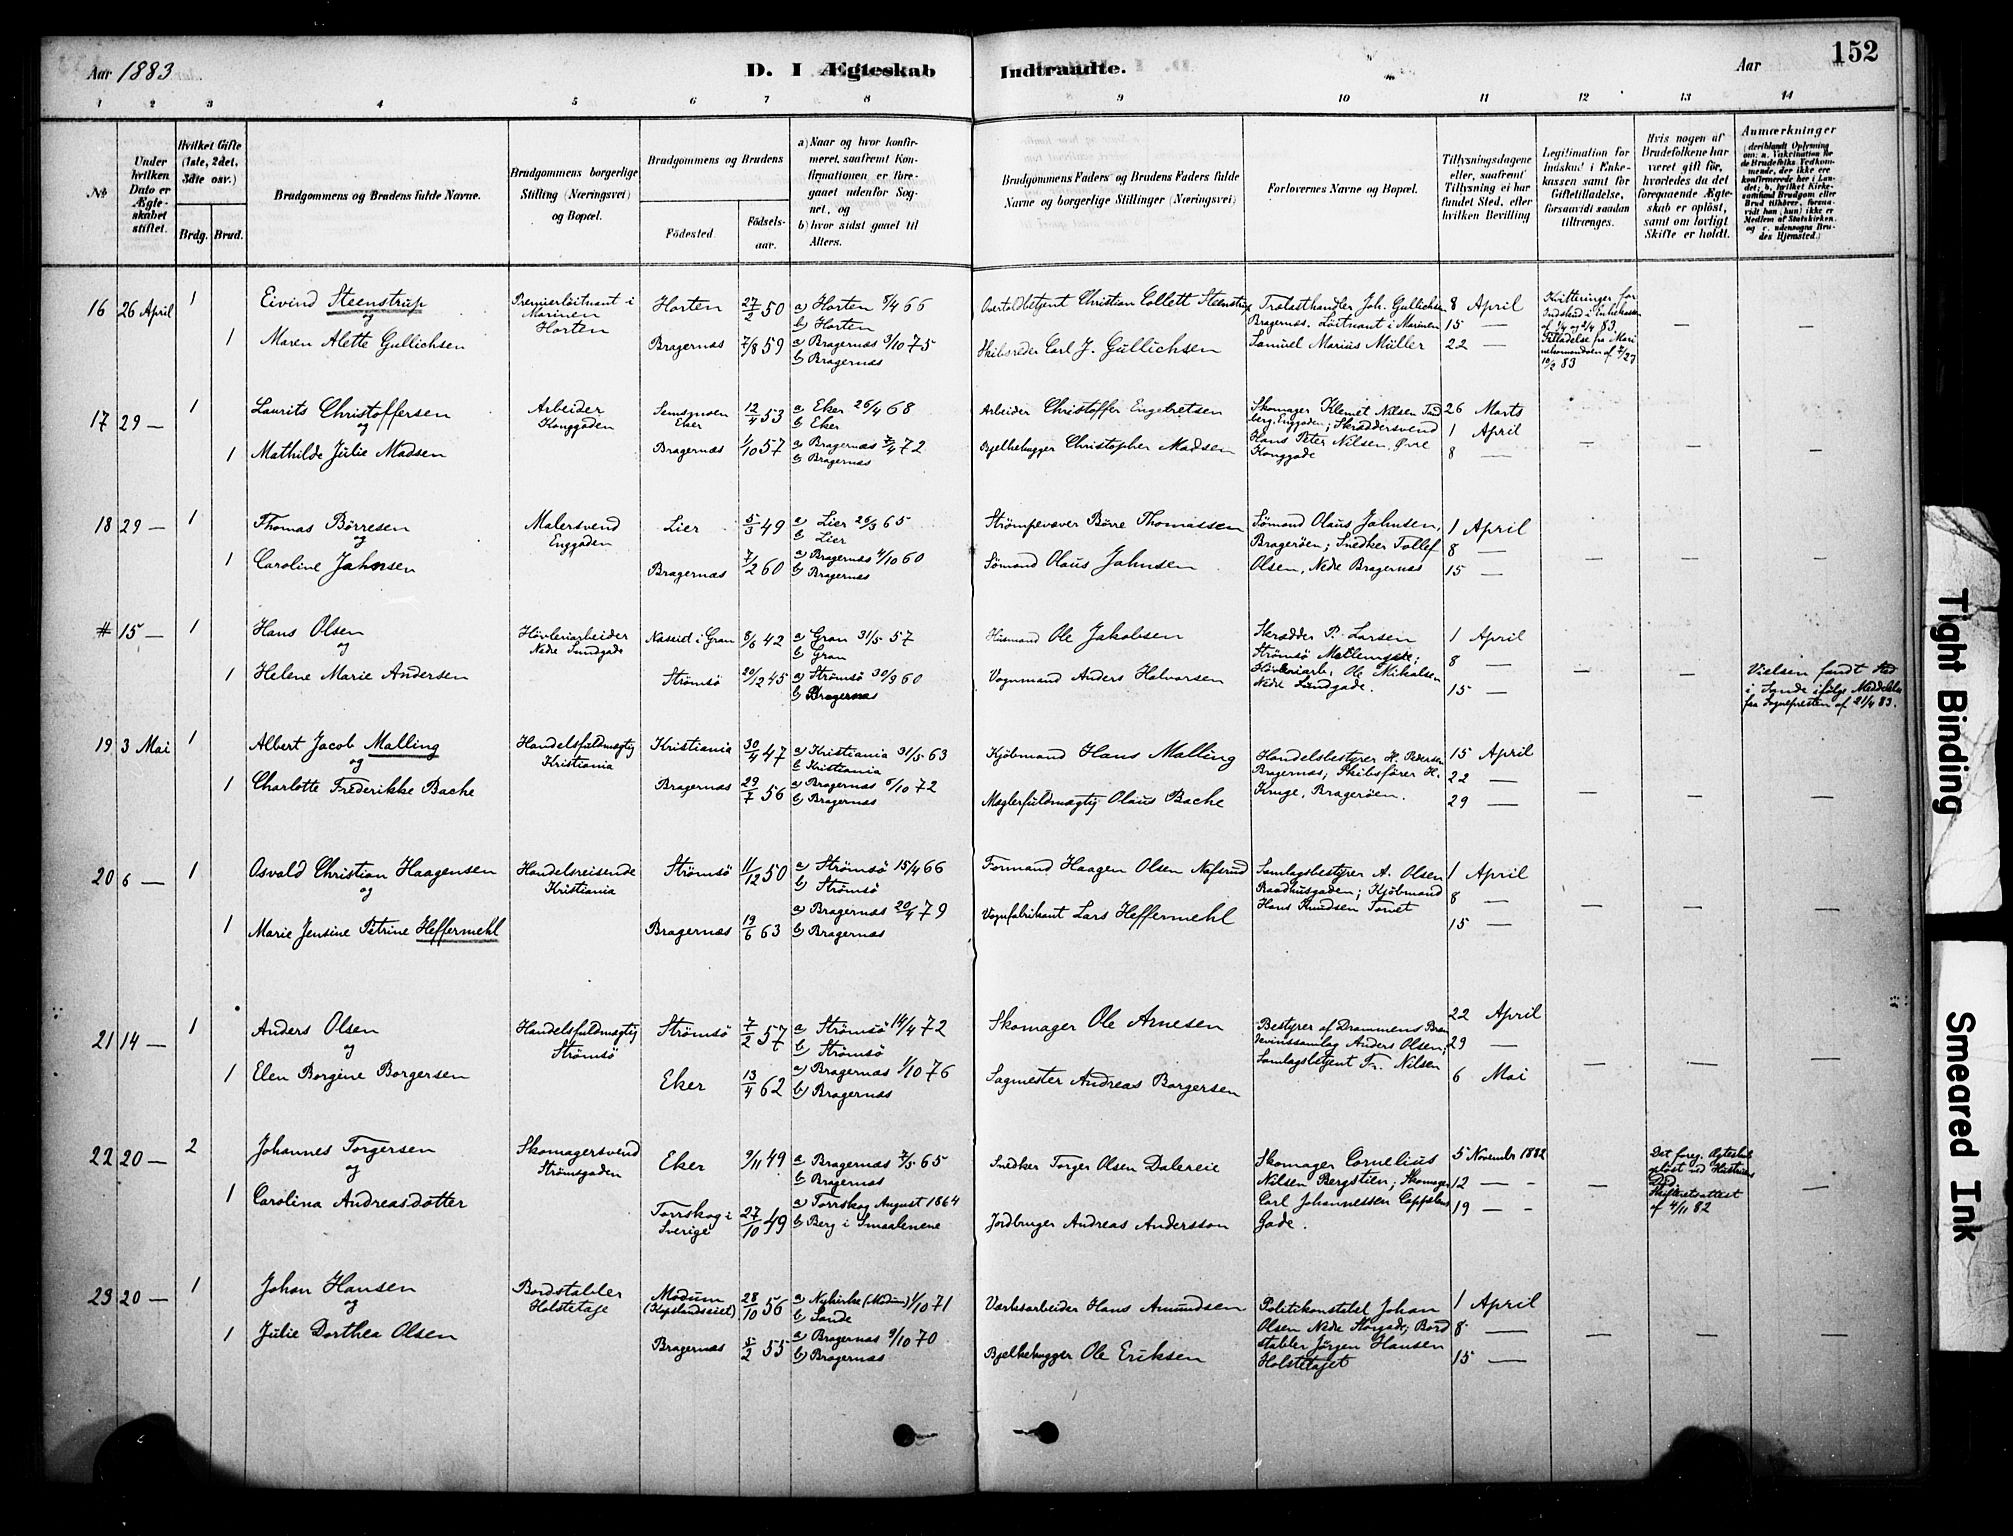 152
Aar 1883
D. I Ægteskab Indtraadte.
Aar
1 2 3 4 5 6 7 8 9 10 11 12 13 14
№
Under hvilken Dato er Ægteskabet stiftet.
Hvilket Gifte (1ste, 2det, 3die osv.)
Brdg. Brud.
Brudgommens og Brudens fulde Navne.
Brudgommens borgerlige Stilling (Næringsvei) og Bopæl.
Brudgommens og Brudens
Fødested.
Fødselsaar.
a) Naar og hvor konfirmeret, saafremt Konfirmationen er foregaaet udenfor Sognet, og
b) hvor sidst gaaet til Alters.
Brudgommens Faders og Brudens Faders fulde Navne og borgerlige Stillinger (Næringsvei)
Forlovernes Navne og Bopæl.
Tillysningsdagene eller, saafremt Tillysning ei har fundet Sted, efter hvilken Bevilling
Legitimation for Indskud i Enkekassen samt for Giftetilladelse, forsaavidt saadan tiltrænges.
Hvis nogen af Brudefolkene har været gift før, hvorledes da det foregaaende Ægteskab er opløst, samt om lovligt Skifte er holdt.
Anmærkninger (deriblandt Oplysning om: a. Vakcination for de Brudefolks Vedkommende, der ikke ere konfirmerede her i Landet; b. hvilket Kirkesamfund Brudgom eller Brud tilhører, forsaavidt han (hun) ikke er Medlem af Statskirken, og c. udensogns Brudes Hjemsted.)
16 26 April 1 Eivind Steenstrup Premierløitnant i Marinen Horten Horten 27/2 50 a) Horten 8/4 66 b) Horten Overtoldbetjent Christian Collett Steenstrup Trælasthandler Joh. Gullichsen Bragernæs. Løitnant i Marinen Samuel Marius Müller 8 April 15 — 22 —
Kvitteringer for Indskud i Enkekassen
og
1 Maren Alette Gullichsen Bragernæs 7/8 59 a) Bragernæs 9/10 75 b) Bragernæs Skibsreder Carl J. Gullichsen
17 29 — 1 Laurits Christoffersen Arbeider Konggaden Semsmoen Eker 12/4 53 a Eker 26/4 68 b Eker Arbeider Christoffer Engebretsen Skomager Klemet Nilsen Tandberg, Enggaden; Skræddersvend Hans Peter Nilsen, Øvre Konggade 26 Marts 1 April 8 —
og
1 Mathilde Julie Madsen Bragernæs 1/10 57 a) Bragernæs 7/4 72 b Bragernæs Bjelkehugger Christopher Madsen
18 29 — 1 Thomas Börresen Malersvend Enggaden Lier 5/3 49 a) Lier 26/3 65 b Lier Strømpevæver Börre Thomassen Sømand Olaus Jahnsen, Bragerøen; Snedker Tollef Olsen, Nedre Bragernæs 1 April 8 — 15 —
og
1 Caroline Jahnsen Bragernæs 7/2 60 a) Bragernæs 4/10 60 b) Bragernæs Sømand Olaus Jahnsen
# 15 — 1 Hans Olsen Høvleriarbeider Nedre Sundgade Næseid i Gran 8/6 42 a) Gran 31/5 57 b Gran Husmand Ole Jakobsen Skrædder P. Larsen Strømsø Høvleriarb. Ole Mikalsen Nedre Sundgade. 1 April 8 — 15 —
og
1 Helene Marie Andersen Strømsø 20/12 45 a) Strømsø 30/9 60 b) Bragernæs Vognmand Anders Halvorsen
Vielsen fandt Sted i Sande ifølge Meddelelse fra Sognepresten af 21/4 83.
19 3 Mai 1 Albert Jacob Malling Handelsfuldmægtig Kristiania Kristiania 30/4 47 a) Kristiania 31/5 63 b Kristiania Kjøbmand Hans Malling Handelsbestyrer H. Pedersen Bragernæs; Skibsfører H. Kruge, Bragerøen. 15 April 22 — 29 —
og
1 Charlotte Frederikke Bache Bragernæs 29/7 56 a) Bragernæs 6/10 72 b) Bragernæs Mæglerfuldmægtig Olaus Bache
20 6 — 1 Osvald Christian Haagensen Handelsreisende Kristiania Strømsø 11/12 50 a) Strømsø 15/4 66 b) Strømsø Formand Haagen Olsen Næfsrud Samlagsbestyrer A. Olsen Raadhusgaden; Kjøbmand Hans Knudsen Tomet 1 April 8 — 15 —
og
1 Marie Jensine Petrine Heffermehl Bragernæs 19/6 63 a) Bragernæs 20/4 79 b) Bragernæs Vognfabrikant Lars Heffermehl
21 14 — 1 Anders Olsen Handelsfuldmægtig Strømsø Strømsø 7/2 57 a Strømsø 14/4 72 b) Strømsø Skomager Ole Arnesen Bestyrer af Drammens Brændevinssamlag Anders Olsen; Samlagsbetjent Fr. Nilsen 22 April 29 — 6 Mai
og
1 Elen Borgine Borgersen Eker 13/4 62 a) Bragernæs 1/10 76 b) Bragernæs Sagmester Andreas Borgersen
22 20 — 2 Johannes Torgersen Skomagersvend Strømsgaden Eker 9/11 49 a Bragernæs 7/5 65 b Bragernæs Snedker Torger Olsen Dalereie Skomager Cornelius Nilsen Bergstien; Skomager Carl Johannessen Cappelens Gade. 5 November 1882 12 — - 19 — -
Det foreg. Ægteskab opløst ved Hustruens Død; Skifteretsattest af 4/11 82
og
1 Carolina Andreasdotter Torrskog i Sverige 27/10 49 a) Torrskog August 1864 b Berg i Smaalenene Jordbruger Andreas Andersson
23 20 — 1 Johan Hansen Bordstabler Holstetage Modum (Kopslandseiet) 28/10 56 a) Nykirke (Modum) 1/10 71 b Sande Værksarbeider Hans Amundsen Politikonstabel Johan Olsen Nedre Storgade; Bordstabler Jørgen Hansen Holstetaget 1 April 8 — 15 —
og
1 Julie Dorthea Olsen Bragernæs 5/2 55 a) Bragernæs 9/10 70 b) Bragernæs Bjelkehugger Ole Eriksen
Tight Binding
Smeared Ink